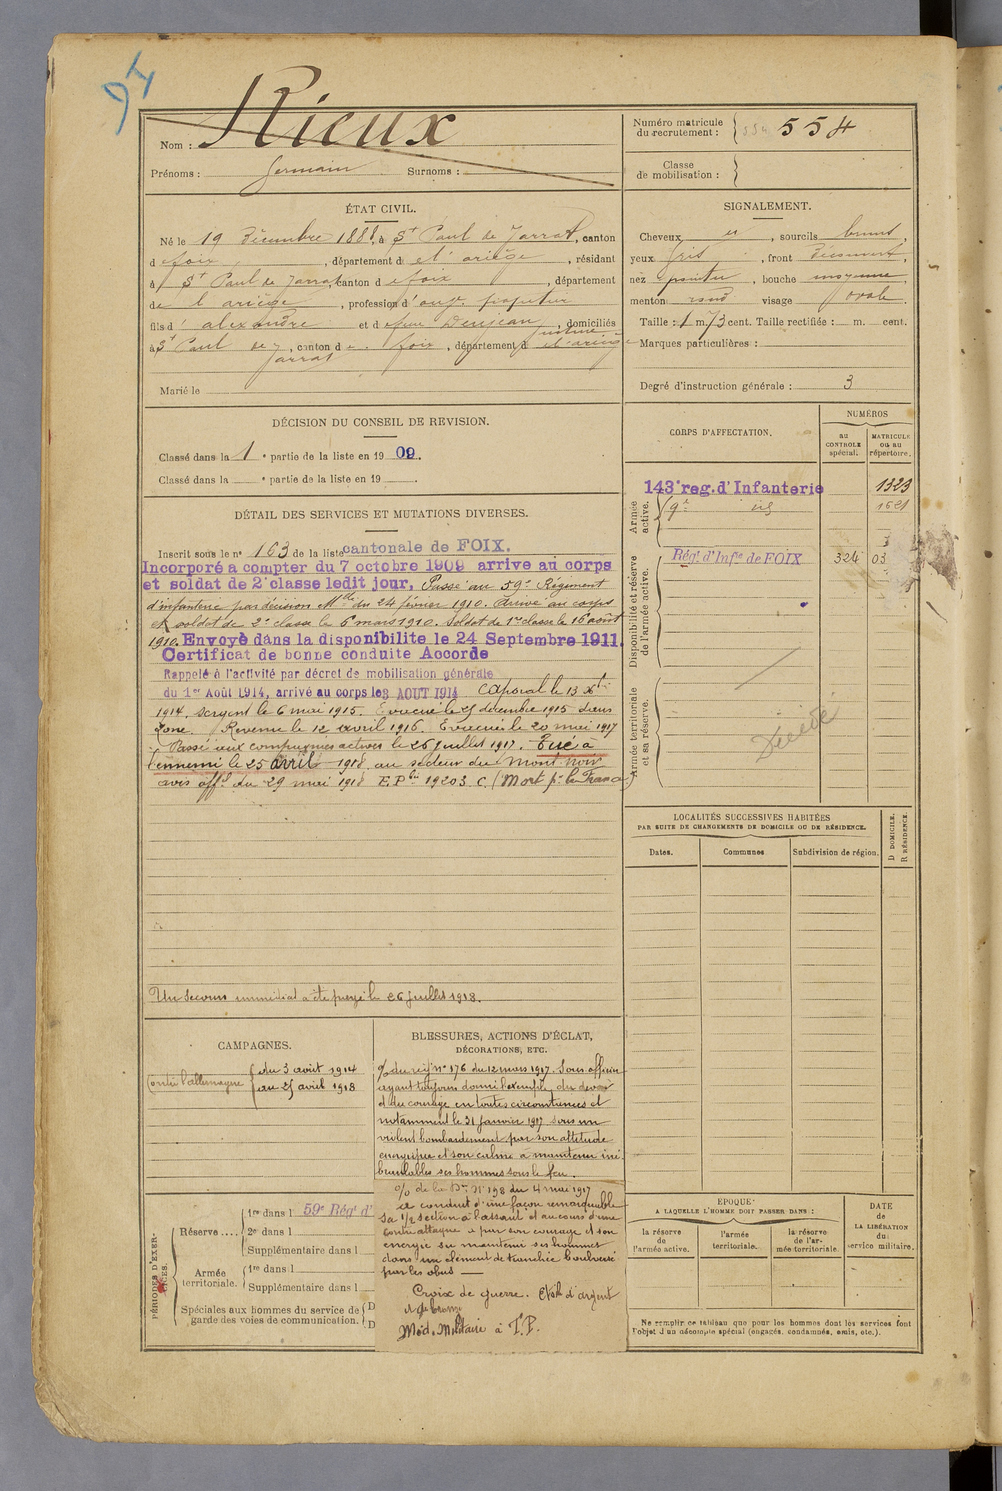 94
Nom : Rieux
Prénoms : Germain Surnoms :
Numéro matricule
du recrutement : 554 554
Classe
de mobilisation :
ÉTAT CIVIL.
Né le 19 Décembre 1888, à St Paul de Jarrat, canton
d e foix, département d e l'ariège, résidant
à St Paul de Jarrat canton d e foix, département
de l'ariège, profession d'
fils d' alexandre et d e feue Denjean Justine, domiciliés
à St Paul de Jarrat, canton d e foix, département d e l'ariège
Marié le
SIGNALEMENT.
Cheveux et, sourcils bruns,
yeux gris, front Découvert,
nez pointu, bouche moyenne,
menton rond visage ovale.
Taille : 1 m. 73 cent. Taille rectifiée : m. cent.
Marques particulières :
Degré d'instruction générale : 3
DÉCISION DU CONSEIL DE REVISION.
Classé dans la 1 e partie de la liste en 19 09.
Classé dans la e partie de la liste en 19 .
DÉTAIL DES SERVICES ET MUTATIONS DIVERSES.
Inscrit sous le n° 163 de la liste cantonale de FOIX.
Incorporé a compter du 7 octobre 1909 arrive au corps
et soldat de 2e classe ledit jour, Passé au 59e Régiment
d'infanterie par décision Mlle du 24 février 1910. Arrivé au corps
et soldat de 2e classe le 6 mars 1910. Soldat de 1re classe le 16 août
1910. Envoyé dans la disponibilite le 24 Septembre 1911.
Certificat de bonne conduite Accorde
Rappelé à l'activité par décret de mobilisation générale
du 1er Août 1914, arrivé au corps le 3 AOUT 1914 Caporal le 13 Xbre
1914, Sergent le 6 mai 1915. Evacué le 25 décembre 1915
zone. Revenu le 12 avril 1916. Evacué le 20 mai 1917
Passé aux compagnies actives le 26 juillet 1917. Tué à
l'ennemi le 25 avril 1918 au secteur du Mont noir
avis offel du 29 mai 1918 E.P. 19203 C. (Mort pr la France)
Un secours immédiat a été payé le 26 juillet 1918.
CORPS D'AFFECTATION.
NUMÉROS
au
CONTROLE
spécial.
MATRICULE
ou au
répertoire.
Armée
active.
143e reg. d'Infanterie 1323
9e id 1521
Disponibilité et réserve
de l'armée active.
Régt d'Infie de FOIX 324 03
Armée territoriale
et sa réserve.
Décédé
LOCALITÉS SUCCESSIVES HABITÉES
PAR SUITE DE CHANGEMENTS DE DOMICILE OU DE RÉSIDENCE.
Dates.
Communes
Subdivision de région.
D DOMICILE.
R RÉSIDENCE.
CAMPAGNES.
Contre l'allemagne du 3 août 1914
au 25 avril 1918
BLESSURES, ACTIONS D'ÉCLAT,
DÉCORATIONS, ETC.
% du régt n° 176 du 12 mars 1917. Sous officier
ayant toujours donné l'exemple du devoir
et du courage en toutes circonstances et
notamment le 31 janvier 1917 sous un
violent bombardement par son attitude
énergique et son calme a maintenu iné
branlables ses hommes sous le feu.
% de la Don N° 198 du 4 mai 1917
a conduit d'une façon remarquable
sa 1/2 section à l'assaut et au cours d'une
contre attaque a par son courage et son
energie su maintenir ses hommes
dans un élément de tranchée boulversé
par les obus
Croix de guerre. Etoile d'argent
et de bronze
Méd. Militaire à T.P.
PÉRIODES D'EXER-
CICES.
Réserve ....
1re dans l 59e Régt d'
2e dans l
Supplémentaire dans l
Armée
territoriale.
1re dans l
Supplémentaire dans l
Spéciales aux hommes du service de D
garde des voies de communication. D
EPOQUE
A LAQUELLE L'HOMME DOIT PASSER DANS :
la réserve
de
l'armée active.
l'armée
territoriale.
la réserve
de l'ar-
mée territoriale.
DATE
de
LA LIBÉRATION
du
service militaire.
Ne remplir ce tableau que pour les hommes dont les services font
l'objet d'un décompte spécial (engagés, condamnés, omis, etc.).